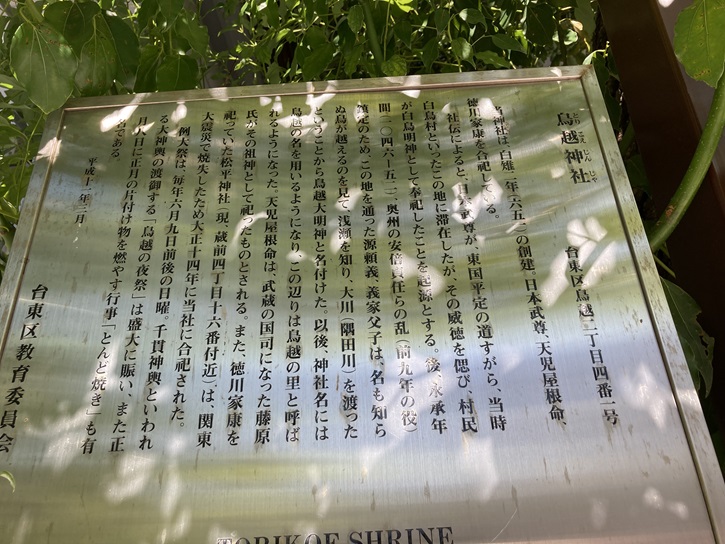 鳥越神社 台東区鳥越二丁目四番一号
とり こえ じん じゃ
当神社は、白雉二年(六五一)の創建。日本武尊、天児屋根命、
徳川家康を合祀している。
社伝によると、日本武尊が、東国平定の道すがら、当時
白鳥村といったこの地に滞在したが、その威徳を偲び、村民
が白鳥明神として奉祀したことを起源とする。後、永承年
間(一〇四六〜五二)、奥州の安倍貞任らの乱(前九年の役)
鎮定のため、この地を通った源頼義、義家父子は、名も知ら
ぬ鳥が越えるのを見て、浅瀬を知り、大川(隅田川)を渡った
ということから鳥越大明神と名付けた。以後、神社名には
鳥越の名を用いるようになり、この辺りは鳥越の里と呼ば
れるようになった。天児屋根命は、武蔵の国司になった藤原
氏がその祖神として祀ったものとされる。また、徳川家康を
祀っていた松平神社(現、蔵前四丁目十六番付近)は、関東
大震災で焼失したため大正十四年に当社に合祀された。
例大祭は、毎年六月九日前後の日曜。千貫神輿といわれ
る大神輿の渡御する「鳥越の夜祭」は盛大に賑い、また正
月八日に正月の片付け物を燃やす行事「とんど焼き」も有
名である。
平成十一年三月
台東区教育委員会
TORIKOE SHRINE